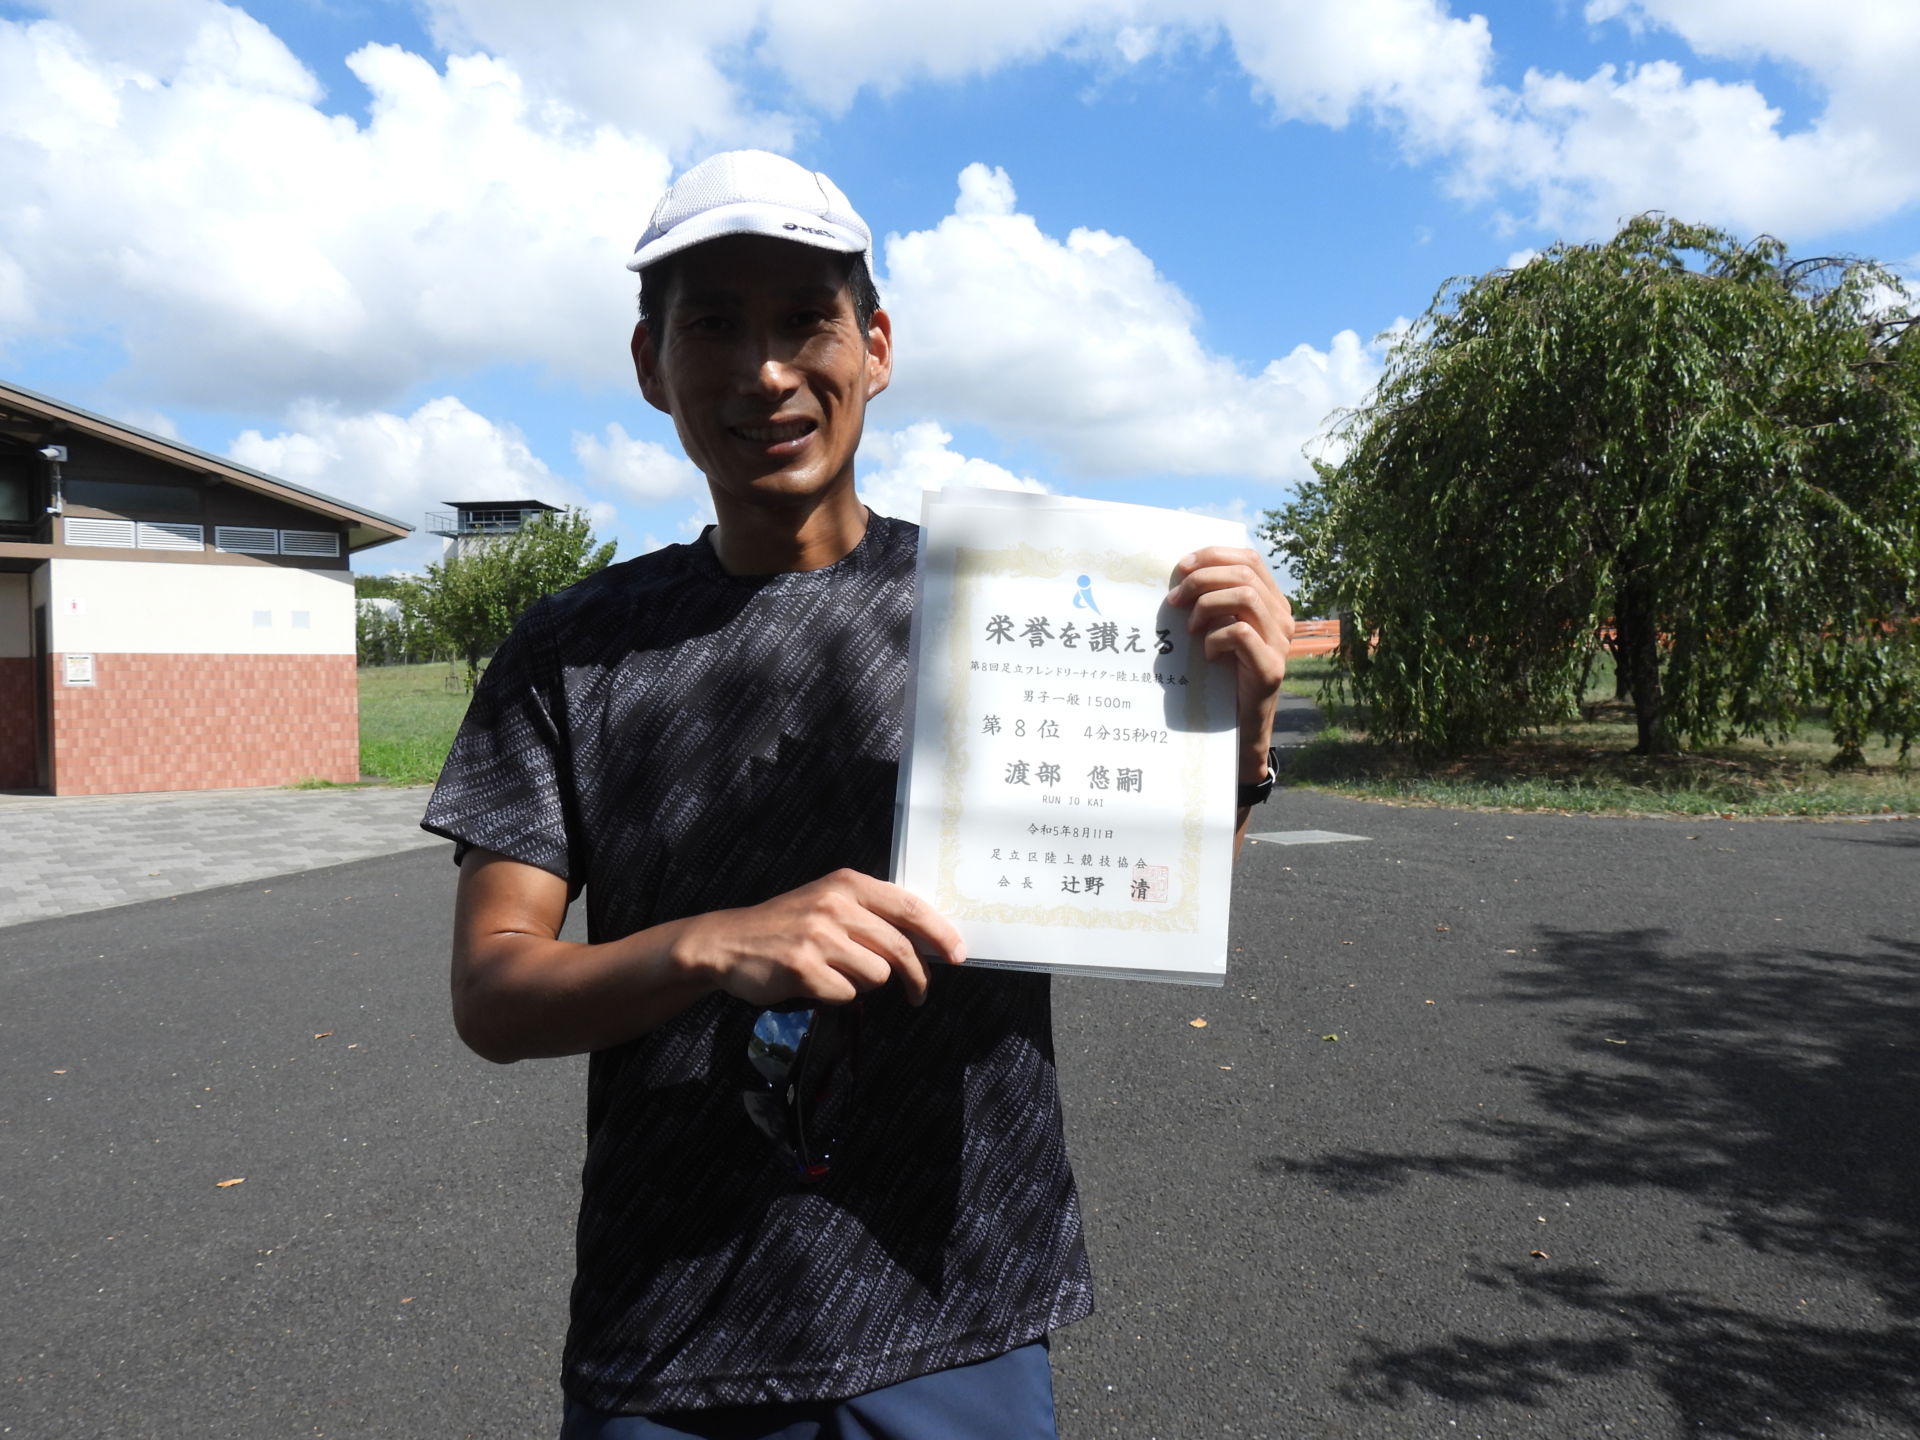 栄誉を讃える
第8回足立フレンドリーナイター陸上競技大会
男子一般 1500m
第 8 位 4分35秒92
渡部 悠嗣
RUN JO KAI
令和5年8月11日
足立区陸上競技協会
会長 辻野 清